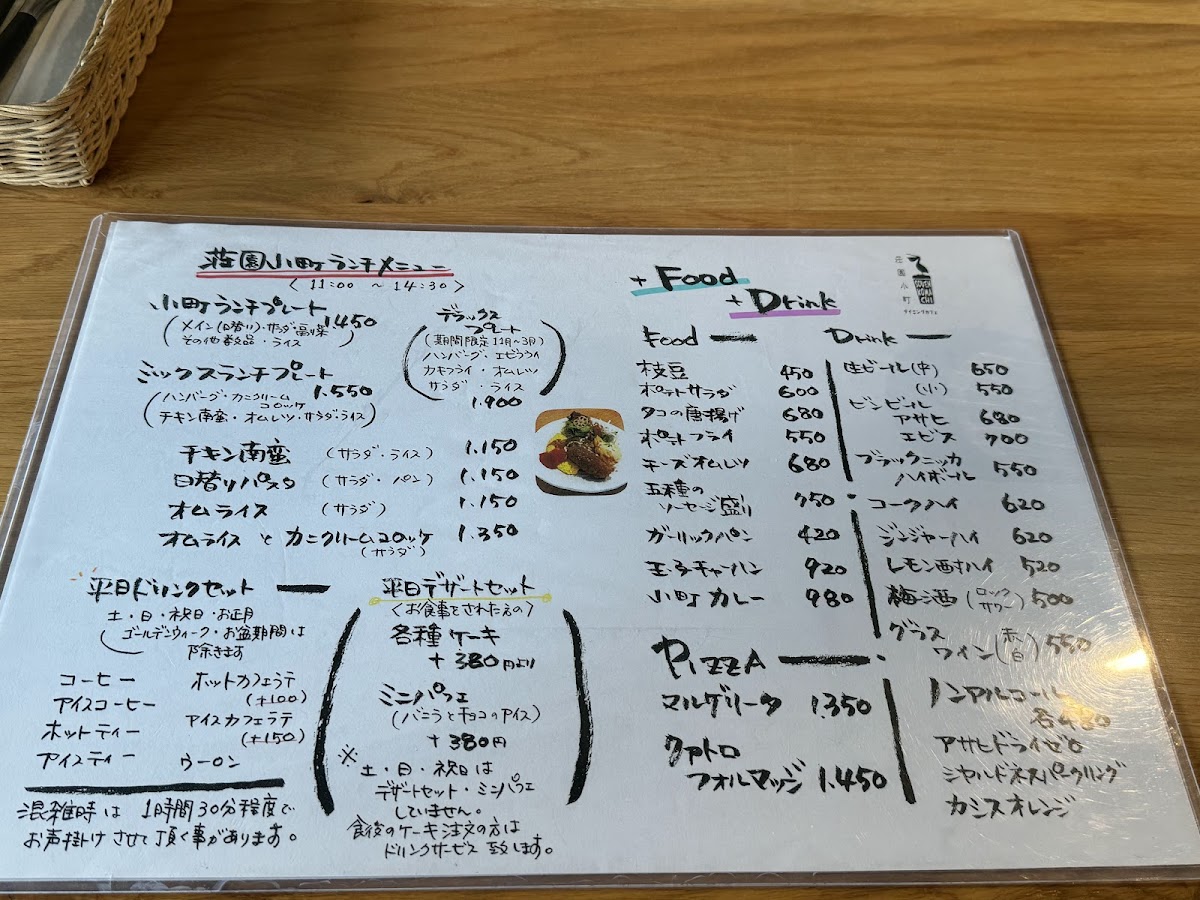 荘園小町ランチメニュー
〈 11:00 〜 14:30 〉
小町ランチプレート
1.450
(メイン(日替り)・サラダ・副菜
その他数品・ライス)
ミックスランチプレート
1.550
(ハンバーグ・カニクリーム
コロッケ
チキン南蛮・オムレツ・サラダ・ライス)
デラックス
プレート
(期間限定11月〜3月)
ハンバーグ・エビフライ
カキフライ・オムレツ
サラダ・ライス
1.900
チキン南蛮 (サラダ・ライス) 1.150
日替りパスタ (サラダ・パン) 1.150
オムライス (サラダ) 1.150
オムライス と カニクリームコロッケ 1.350
(サラダ)
平日ドリンクセット
土・日・祝日・お正月
ゴールデンウィーク・お盆期間は
除きます
コーヒー ホットカフェラテ
(+100)
アイスコーヒー アイスカフェラテ
(+150)
ホットティー
アイスティー ウーロン
混雑時は 1時間30分程度で
お声掛けさせて頂く事があります。
平日デザートセット
〈お食事をされた方の〉
各種ケーキ
+380円より
ミニパフェ
(バニラとチョコのアイス)
+380円
※
土・日・祝日は
デザートセット・ミニパフェ
していません。
食後のケーキ注文の方は
ドリンクサービス致します。
+ Food
+ Drink
荘園小町
SOUEN
KOMA
CHI
ダイニングカフェ
Food
枝豆 450
ポテトサラダ 600
タコの唐揚げ 680
ポテトフライ 550
チーズオムレツ 680
五種の
ソーセージ盛り 750
ガーリックパン 420
玉子チャーハン 920
小町カレー 980
PIZZA
マルゲリータ 1.350
クアトロ
フォルマッジ 1.450
Drink
生ビール(中) 650
(小) 550
ビンビール
アサヒ 680
エビス 700
ブラックニッカ
ハイボール 550
コークハイ 620
ジンジャーハイ 620
レモン酎ハイ 520
梅酒 (ロック
サワー) 500
グラス
ワイン (赤
白) 550
ノンアルコール
各480
アサヒドライゼロ
シャルドネスパークリング
カシスオレンジ